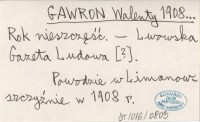 GAWRON Walenty 1908...
Rok nieszczęść. – Lwowska
Gazeta Ludowa [?].
Powodzie w Limanow
szczyźnie w 1908 r.